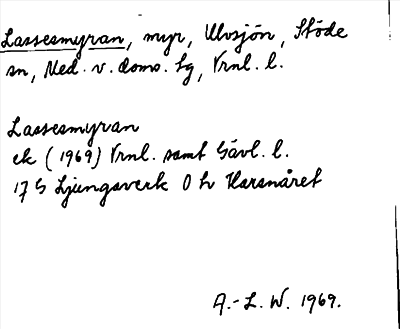 Lassesmyran, myr, Ulvsjön, Stöde
sn, Med. v. doms. tg, Vrnl. l.
Lassesmyran
ek (1969) Vrnl. samt Gävl. l.
17 G Ljungaverk 0 h Harsnåret
A.-L. W. 1969.